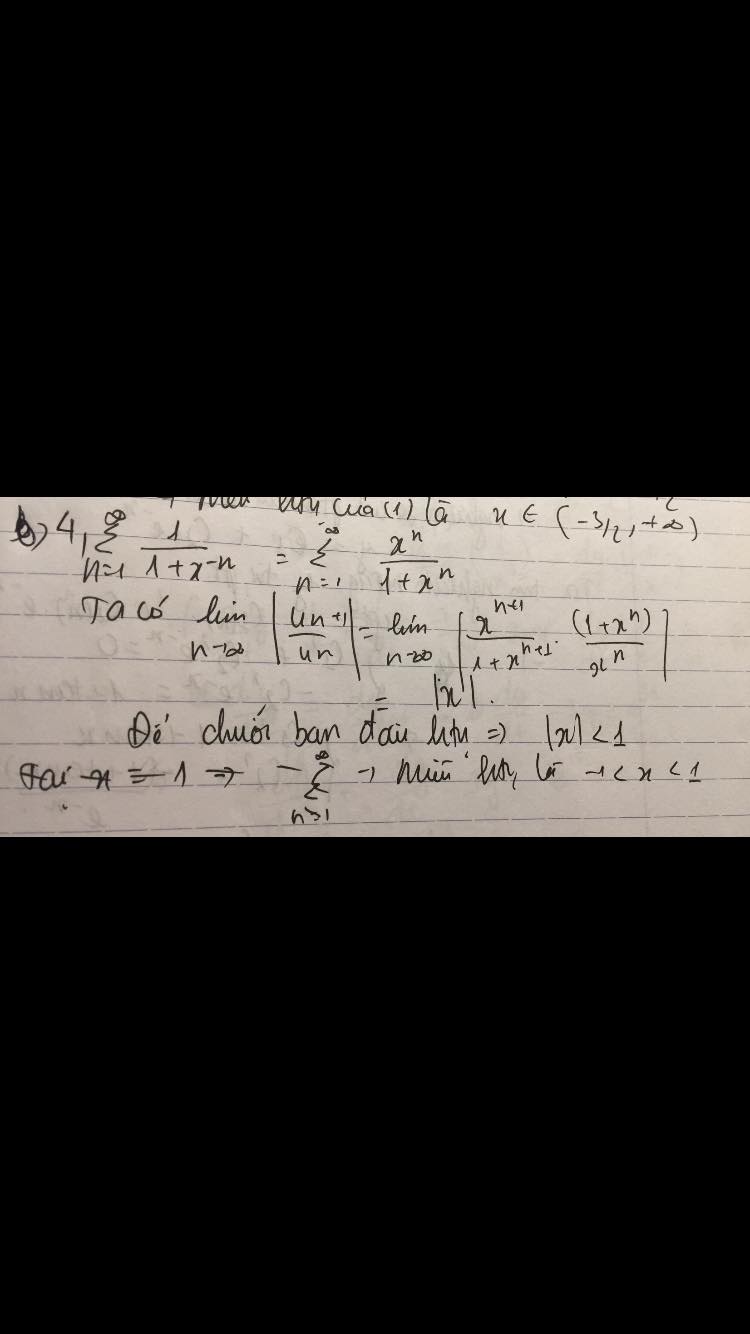 của (1) là x ∈ (-3/2, +∞)
b) 4, ∞∑n=1 1/(1+x^-n) = ∞∑n=1 x^n/(1+x^n)
Ta có lim n→∞ |un+1/un| = lim n→∞ |x^n+1/(1+x^n+1) · (1+x^n)/x^n|
= |x|.
Để chuỗi ban đầu htụ ⇒ |x| < 1
Tại x = -1 ⇒ - ∞∑n=1 → Miền htụ là -1 < x < 1